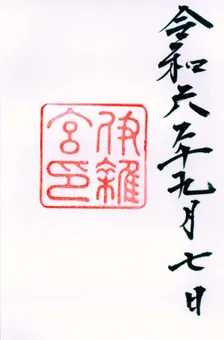 令和六年九月七日
伊雜
宮印